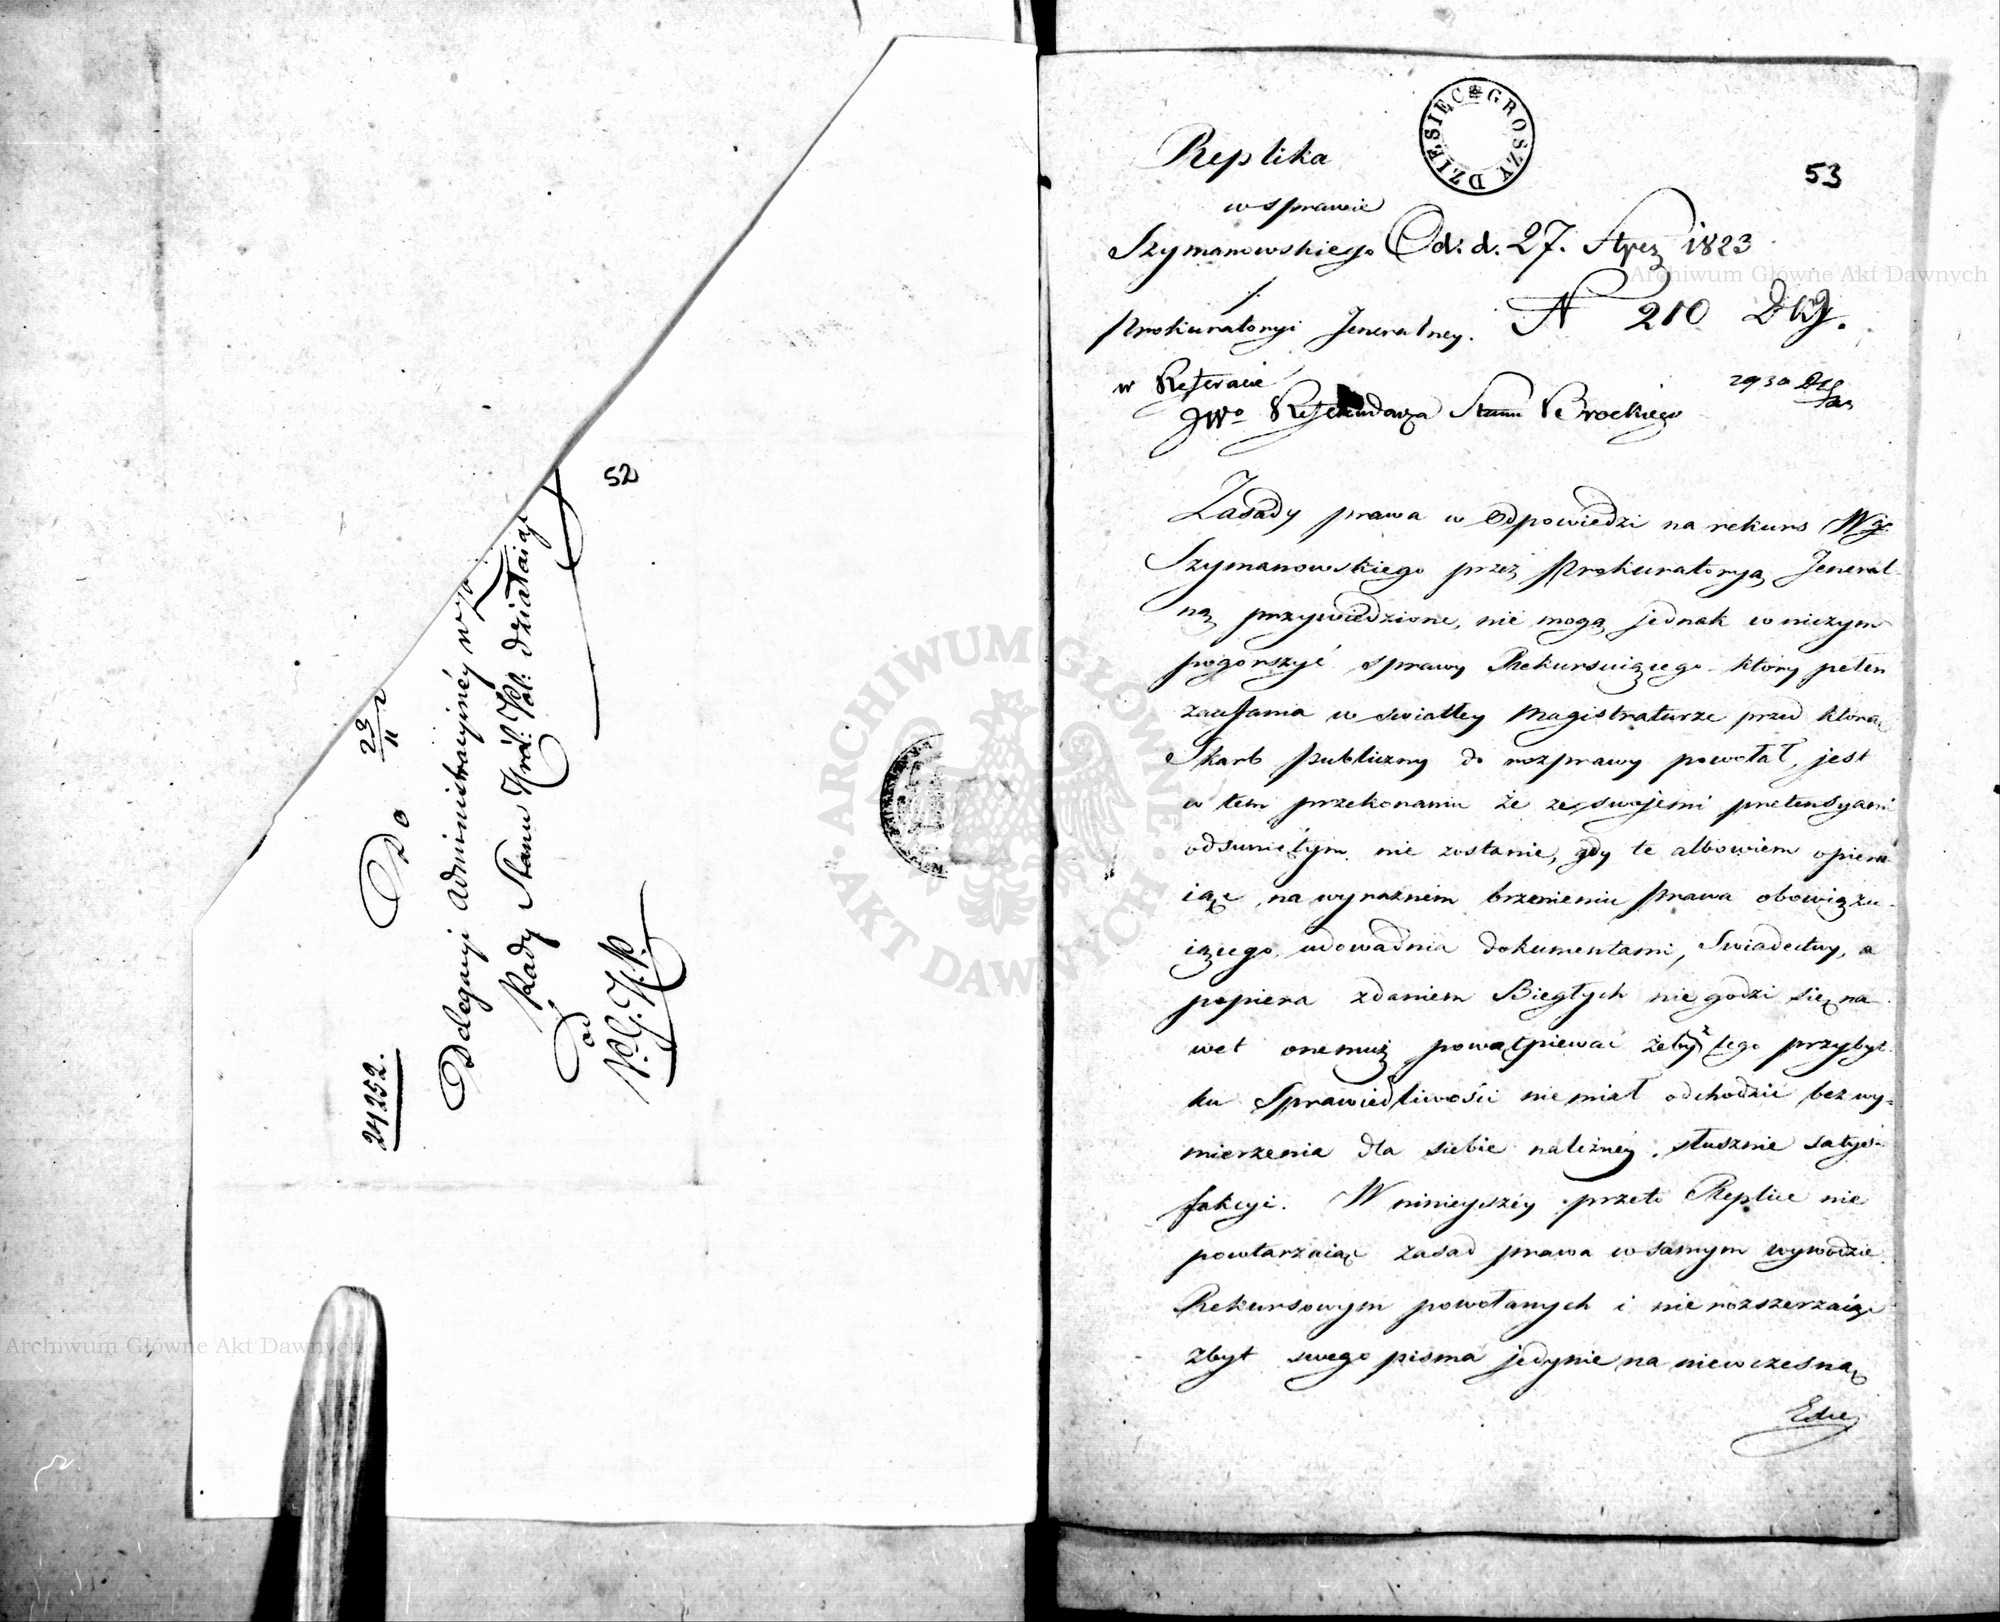 52
24252.
Do
23
11
Delegacyi Administracyinéy w
Rady Stanu Król: Pol: działaiącé
od
P. G. K. P.
DZIESIĘĆ GROSZY
53
Replika
w sprawie
Szymanowskiego Od. d. 27. 1823
/
Prokuratoryi Jeneralney. N 210
w Referacie
JWo Referendarza Stanu Brockiego
Zasady prawa w Odpowiedzi na rekurs Wgo
Szymanowskiego przez Prokuratoryą Jeneral-
ną przywiedzione, nie mogą jednak w niczym
pogorszyć sprawy Rekursuiącego który pełen
zaufania w swiatłey Magistraturze przed którą
Skarb publiczny do rozprawy powołał, jest
w tem przekonaniu że ze swojemi pretensyami
odsuniętym nie zostanie, gdy te albowiem opiera
iąc na wyraźnem brzemieniu prawa obowiązu-
iącego, udowadnia dokumentami, Swiadectwy, a
popiera zdaniem Biegłych nie godzi się na
wet onemuż powątpiewać żeby z tego przybyt-
ku Sprawiedliwości nie miał odchodzić bez wy-
mierzenia dla siebie należnéy słusznie satys-
fakcyi. W ninieyszéy przeto Replice nie
powtarzaiąc zasad prawa w samym wywodzie
Rekursowym powołanych i nie rozszerzaiąc
zbyt swego pisma jedynie na niewczesną
Archiwum Główne Akt Dawnych
Archiwum Główne Akt Dawnych
ARCHIWUM GŁÓWNE AKT DAWNYCH